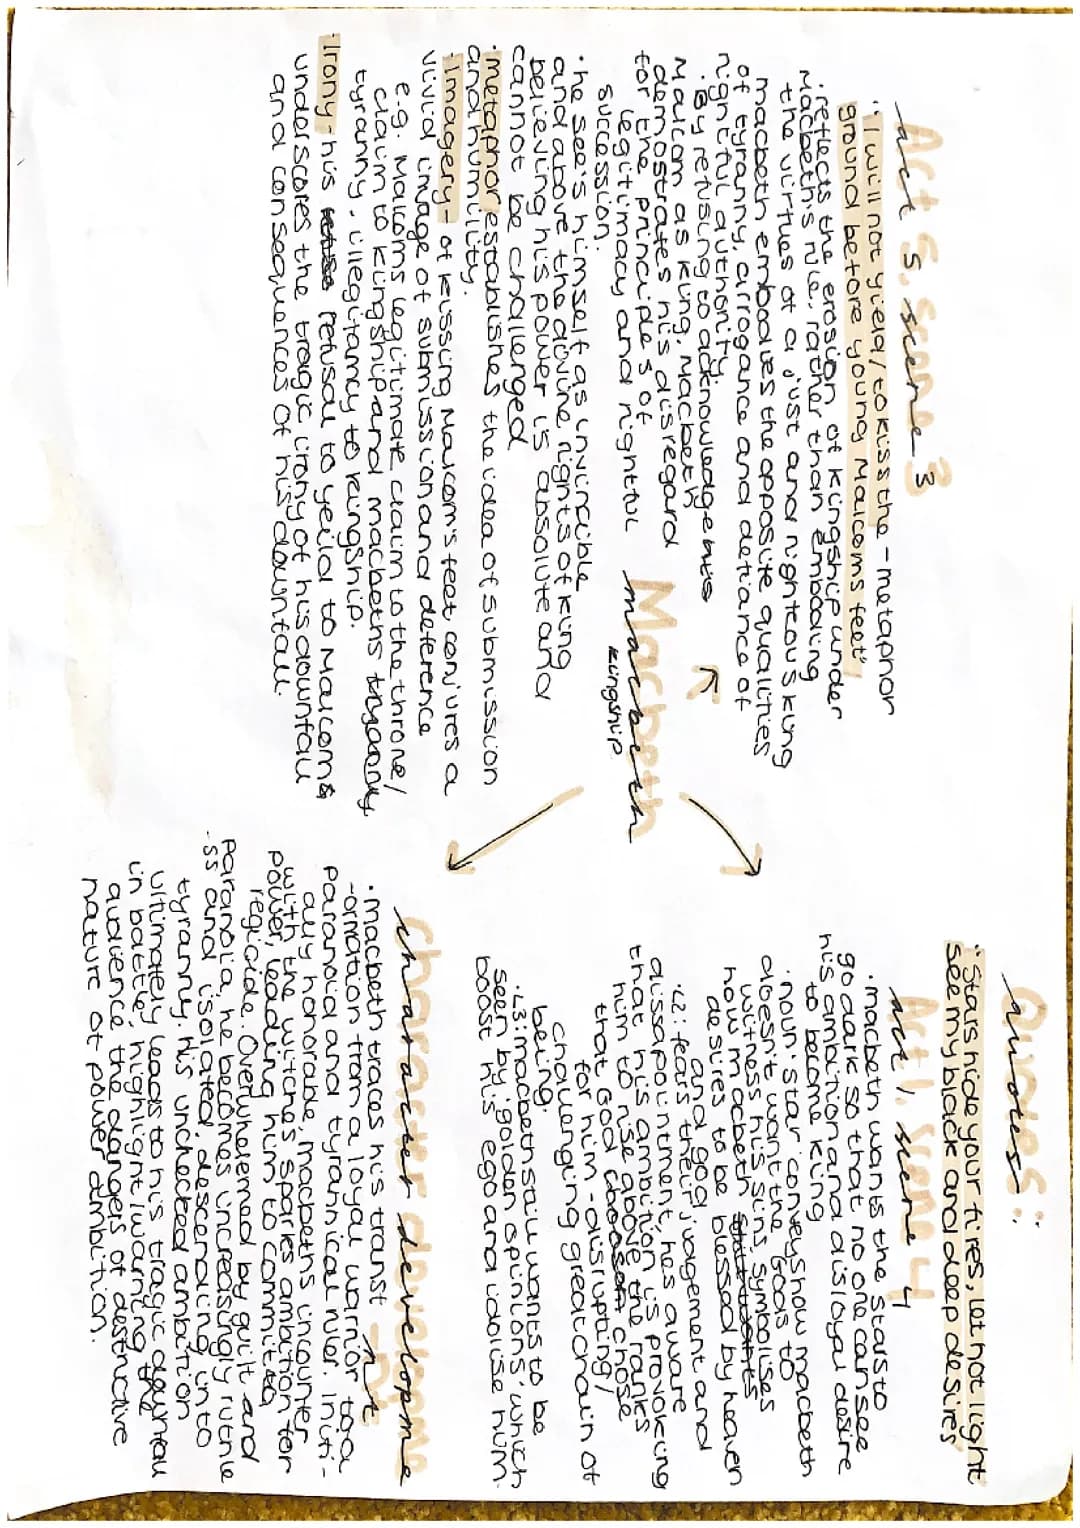 Act 5, scene 3
"I will not yield/ to kiss the - metaphor
ground before young Malcoms feet"
· reflects the erosion of kingship under
Macbeth's rule. rather than emboding
the virtues of a just and righteous king
macbeth embodies the opposite qualities
of tyranny, arrogance and defiance of
rightful authority.
· By refusing to acknowledge his
Malcom as king, Macbeth
demostrates his disregard
for the principles of
legitimacy and rightful
succession.
· he see's himself as invincible
and above the divine rights of king
believing his power is absolute and
cannot be challenged
· metaphor establishes the idea of submission
and humility.
· Imagery - of kissing Malcom's feet conjures a
vivid image of submission and deference
e.g. Malcoms legitimate claim to the throne/
claim to kingship and macbeths
tyranny. illegitamcy to kingship.
· Irony - his refusal to yeild to Malcom
underscores the tragic irony of his downfall
and consequences of his downfall.
Macbeth
kingship
Quotes:
"Stars hide your fires, let not light
see my black and deep desires
Act 1, scene 4
· macbeth wants the stars to
go dark so that no one can see
his ambition and disloyal desire
to become king
· noun: 'star' conveys how macbeth
doesn't want the Gods to
witness his sins, symbolises
how macbeth
desires to be blessed by heaven
and god
· L2: fears their judgement and
dissapointment, he's aware
that his ambition is provoking
him to rise above the ranks
that God chose
for him - disrupting/
challenging great chain of
being.
· L3: macbeth still wants to be
seen by 'golden opinions' which
boost his ego and idolise him.
Character developme
-nt
· macbeth traces his transf
-ormation from a loyal warrior to a
paranoid and tyrannical ruler. Initi-
ally honorable, macbeths incounter
with the witches sparks ambition for
power, leading him to commit
regicide. Overwhelmed by guilt and
paranoia, he becomes increasingly ruthle
-ss and isolated, descending into
tyranny. His unchecked ambition
ultimately leads to his tragic downfall
in battle, highlight/warning the
audience the dangers of destructive
nature of power ambition.